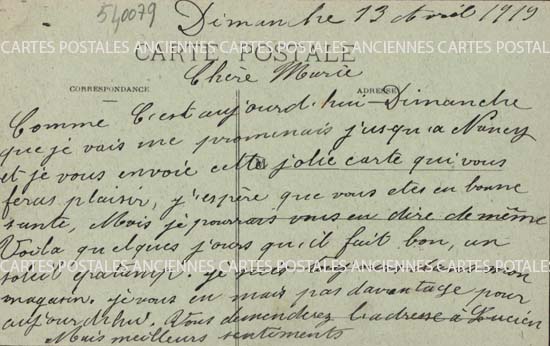 540079
Dimanche 13 Avril 1919
CARTE POSTALE
Chère Marie
CORRESPONDANCE
ADRESSE
CARTES POSTALES ANCIENNES CARTES POSTALES ANCIENNES CARTES POSTALES
Comme C'est aujourd'hui Dimanche
que je vais me promenais jusqu'a Nancy
et je vous envoie cette jolie carte qui vous
feras plaisir, j'espère que vous etes en bonne
santé, Mais je pourrais vous en dire de même
Voila quelques jours qu'il fait bon, un
soleil
magasin. je vous en mais pas davantage pour
aujourdhui. Vous demenderez l'adresse à Lucien
Mais meilleurs sentiments